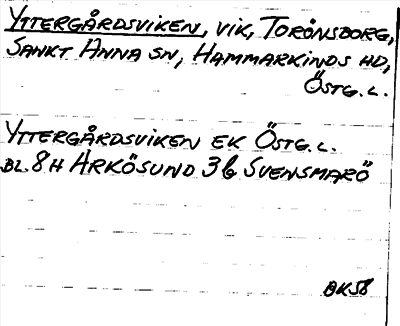 YTTERGÅRDSVIKEN, VIK, TORÖNSBORG,
SANKT ANNA SN, HAMMARKINDS HD,
ÖSTG. L.
YTTERGÅRDSVIKEN EK ÖSTG. L.
BL. 8H ARKÖSUND 3b SVENSMARÖ
BK58